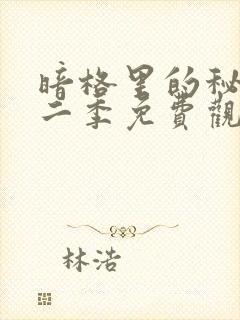 暗格里的秘
二季免費觀
林浩